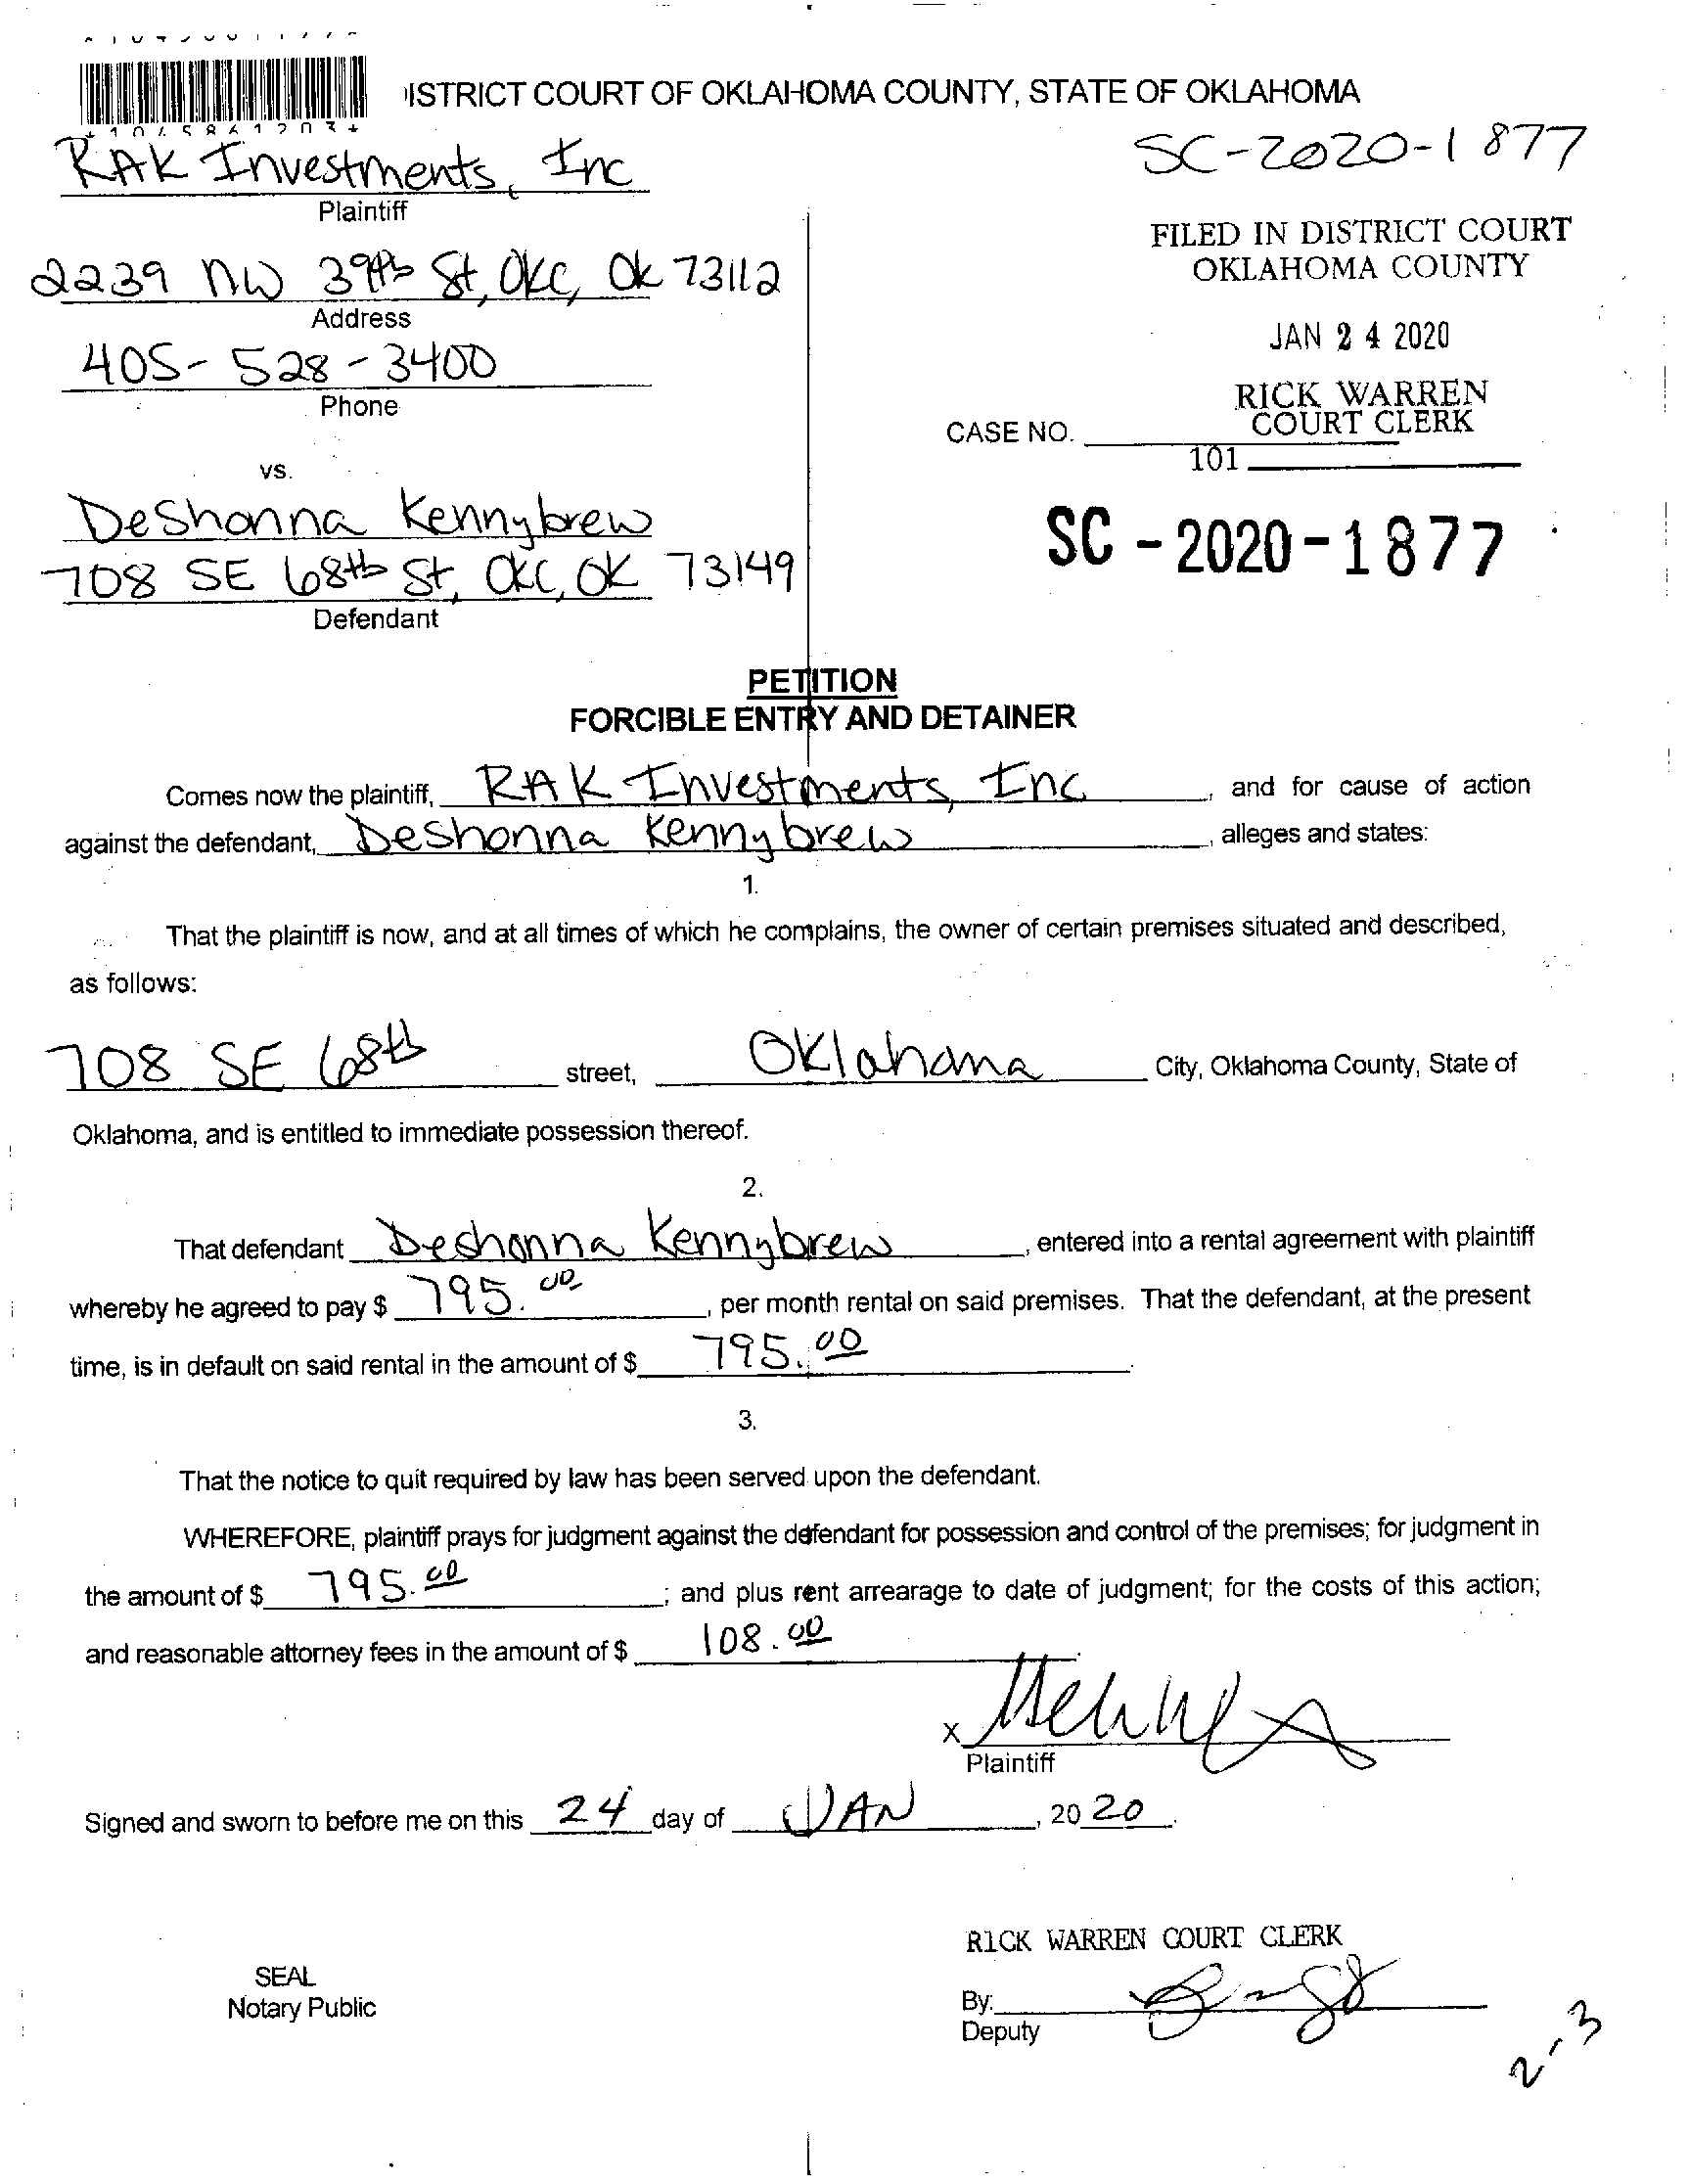 ISTRICT COURT OF OKLAHOMA COUNTY, STATE OF OKLAHOMA
SC-2020-1877
RAK Investments, Inc
Plaintiff
FILED IN DISTRICT COURT
OKLAHOMA COUNTY
2239 NW 39th St, OKC, Ok 73112
Address
JAN 24 2020
405-528-3400
Phone
RICK WARREN
COURT CLERK
CASE NO.
101
vs.
DeShonna Kennybrew
708 SE 68th St, OKC, OK 73149
Defendant
SC-2020-1877
PETITION
FORCIBLE ENTRY AND DETAINER
Comes now the plaintiff, RAK Investments, Inc, and for cause of action
against the defendant, Deshonna Kennybrew, alleges and states:
1.
That the plaintiff is now, and at all times of which he complains, the owner of certain premises situated and described,
as follows:
708 SE 68th street, Oklahoma City, Oklahoma County, State of
Oklahoma, and is entitled to immediate possession thereof.
2.
That defendant Deshonna Kennybrew, entered into a rental agreement with plaintiff
whereby he agreed to pay $ 795.00, per month rental on said premises. That the defendant, at the present
time, is in default on said rental in the amount of $ 795.00.
3.
That the notice to quit required by law has been served upon the defendant.
WHEREFORE, plaintiff prays for judgment against the defendant for possession and control of the premises; for judgment in
the amount of $ 795.00; and plus rent arrearage to date of judgment; for the costs of this action;
and reasonable attorney fees in the amount of $ 108.00.
X
Plaintiff
Signed and sworn to before me on this 24 day of JAN, 2020.
RICK WARREN COURT CLERK
SEAL
Notary Public
By:
Deputy
2-3